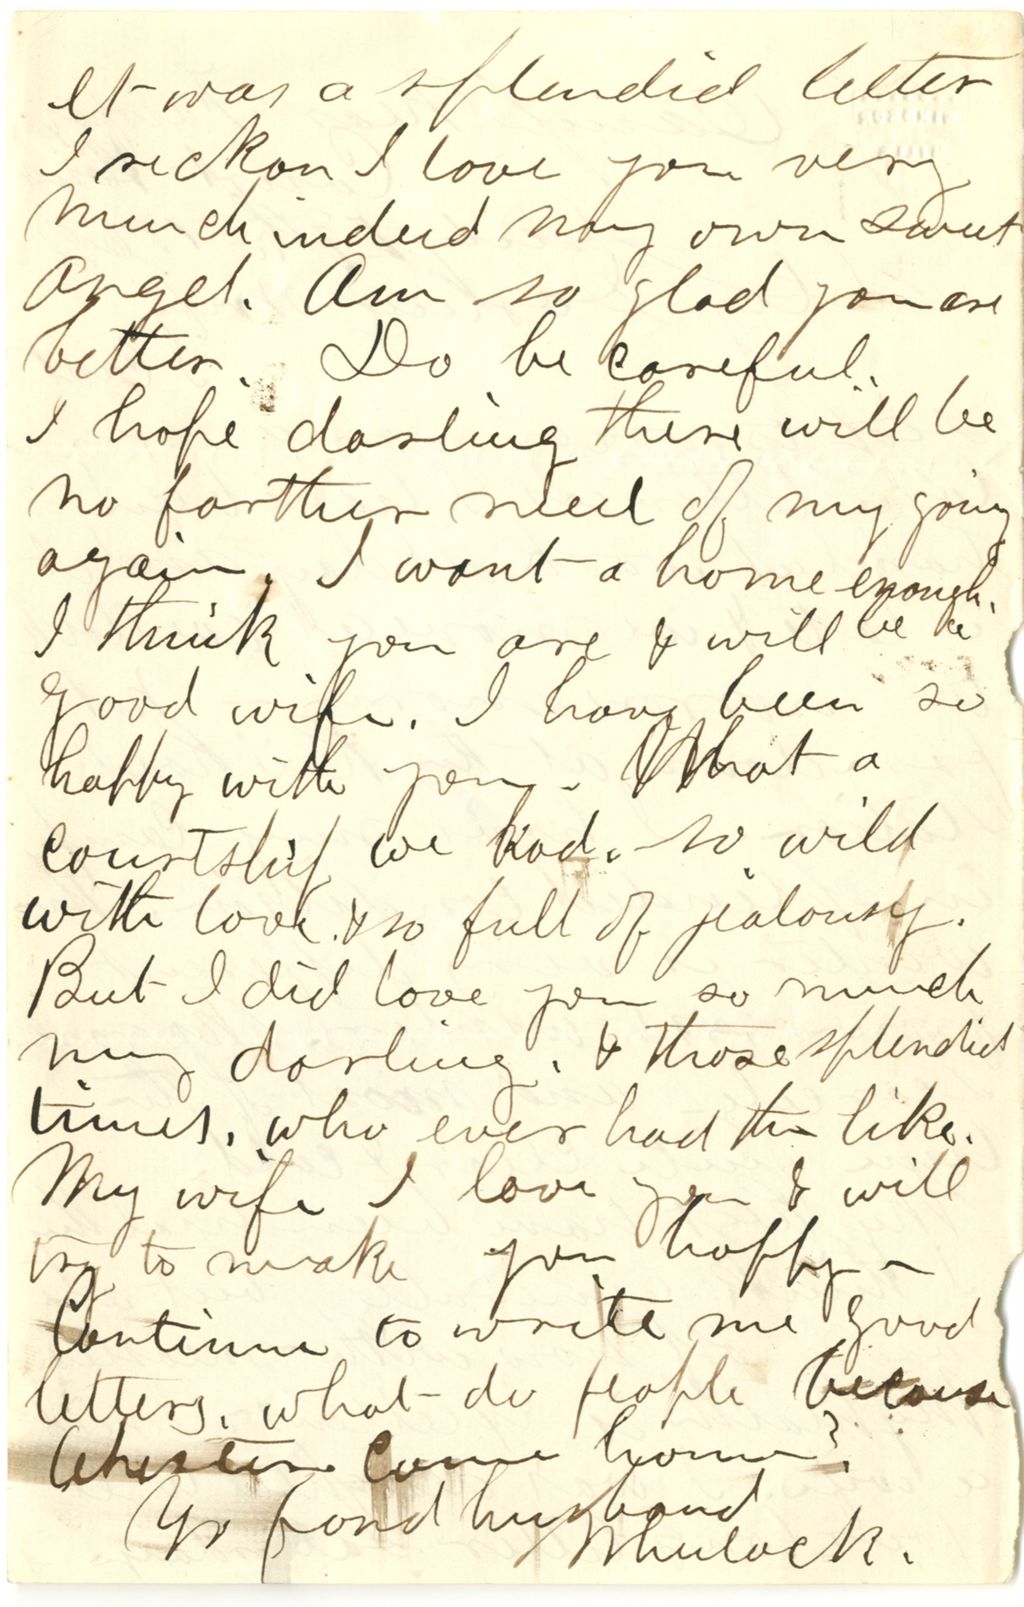 It was a splendid letter
I reckon I love you very
much indeed my own sweet
angel. Am so glad you are
better. Do be careful.
I hope darling there will be
no farther need of my going
again. I want a home enough.
I think you are & will be a
good wife. I have been so
happy with you. What a
courtship we had. so wild
with love. & so full of jealousy.
But I did love you so much
my darling. & those splendid
times, who ever had the like.
My wife I love you & will
try to make you happy -
Continue to write me good
letters. what do people because
come home?
Yr fond husband